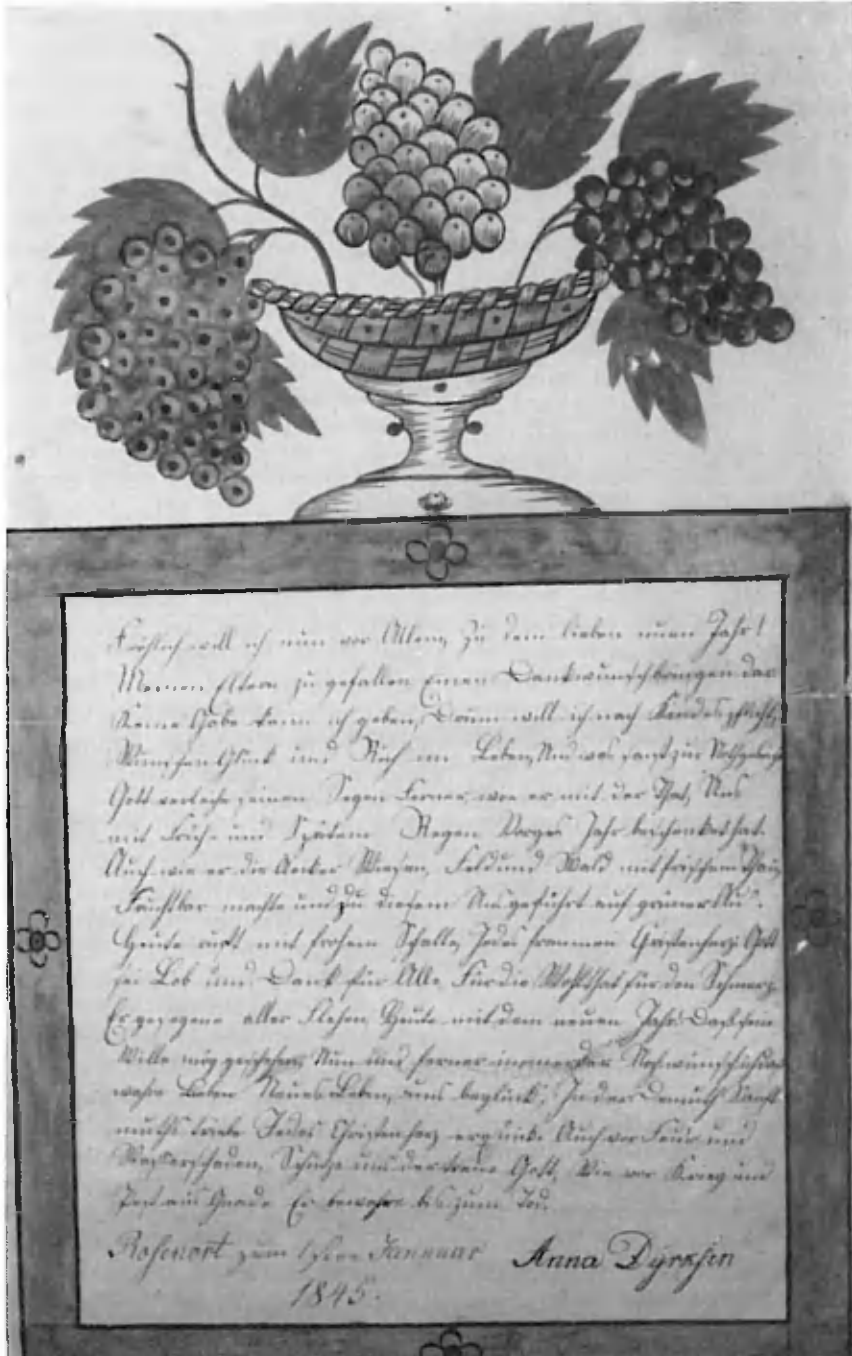 Fröhlich will ich nun vor Allem, Zu dem lieben neuen Jahr!
Meinen Eltern zu gefallen Einen Dankwunsch bringen dar
Keine Gabe kann ich geben, Drum will ich nach Kindespflicht,
Wünschen Glück und Ruh im Leben, Und was sonst zur
Gott verleihe seinen Segen Ferner, wie er mit der That, Uns
mit Früh- und Spätem Regen Voriges Jahr beschenket hat.
Auch wie er die Aecker Wiesen, Feld und Wald mit frischem Thau,
Fruchtbar machte und zu diesem Uns geführt auf grüner Au.
Heute ruft mit frohem Schalle, Jedes frommen Christenherz: Gott
sei Lob und Dank für Alle, Für die Wohlthat für den Schmerz.
Er gesegne aller Flehen, Heute mit dem neuen Jahr. Daß sein
Wille mög geschehen, Nun und ferner immerdar
wahre Liebe Neues Leben, uns beglück, In der Demuth Sanft
muths triebe Jedes Christenherz erquick. Auch vor Feur und
Wasserschaden, Schütze uns der treue Gott, Wie vor Krieg und
Pest aus Gnade Er bewahre bis zum Tod.
Rosenort zum 1sten Januar Anna Dyrksin
1845.